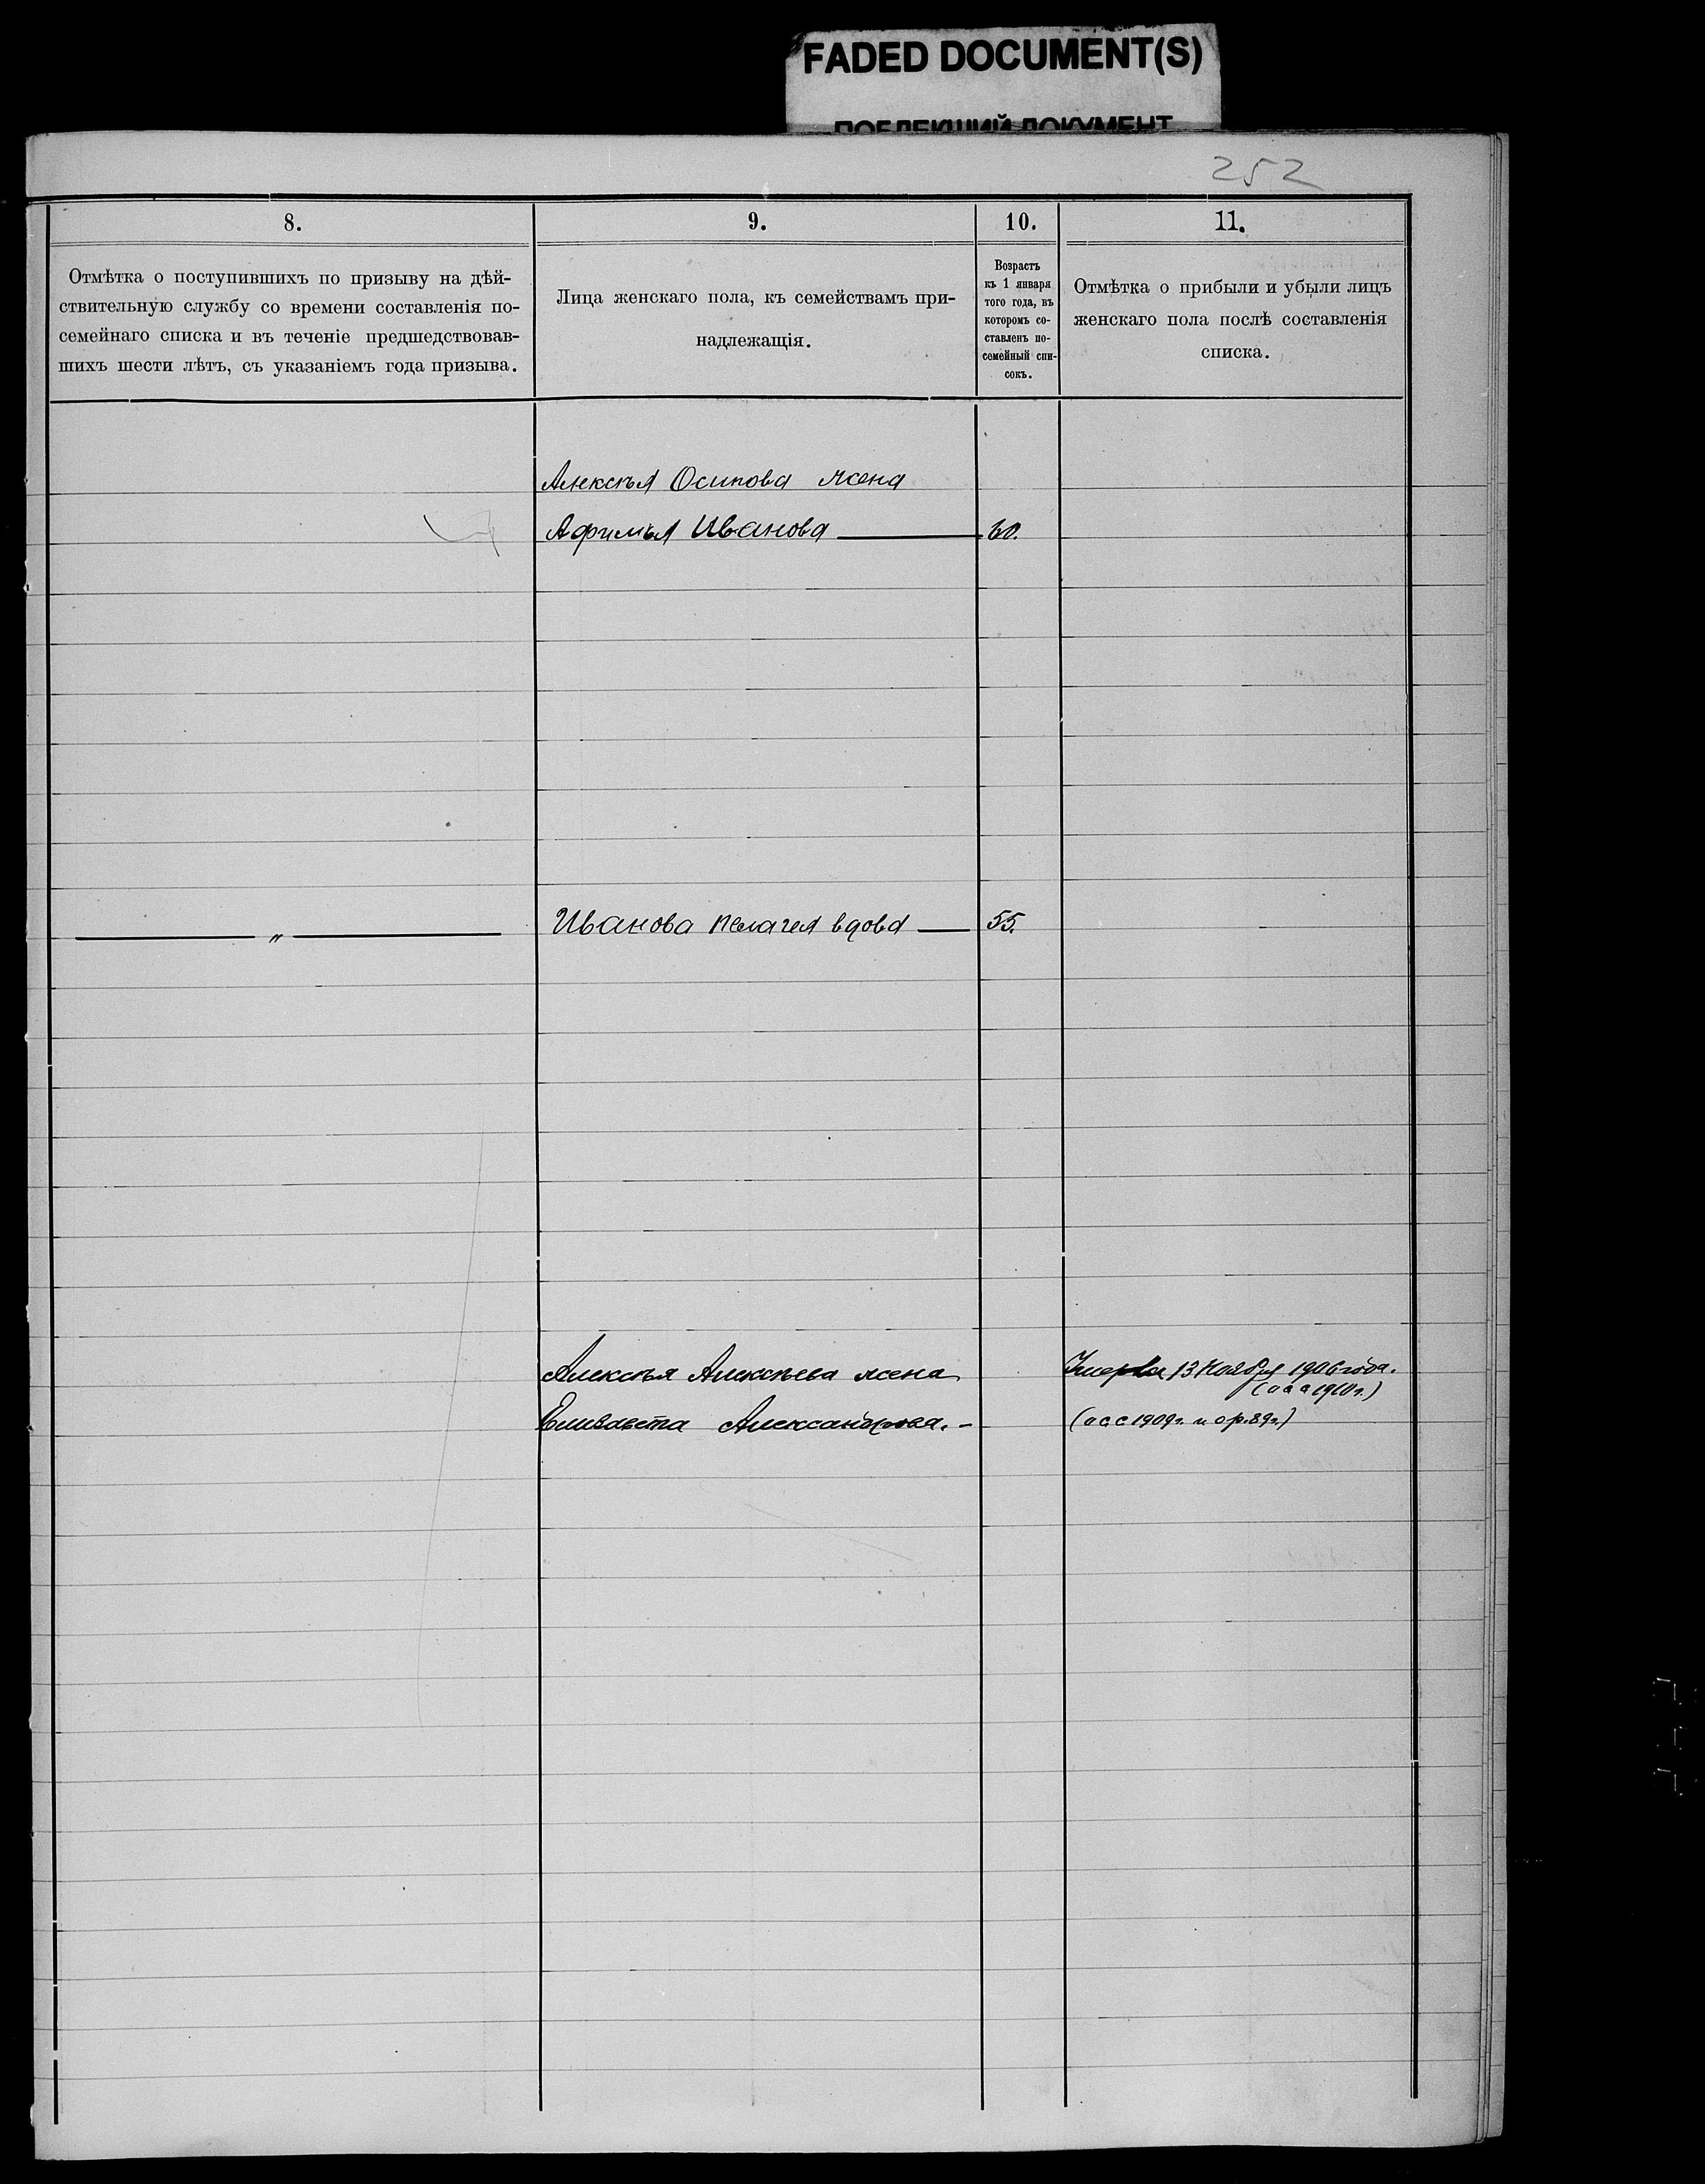 FADED DOCUMENT(S)
ПОБЛЕКШИЙ ДОКУМЕНТ
252
8.
9.
10.
11.
Отмѣтка о поступившихъ по призыву на дѣй-
ствительную службу со времени составленія по-
семейнаго списка и въ теченіе предшедствовав-
шихъ шести лѣтъ, съ указаніемъ года призыва.
Лица женскаго пола, къ семействамъ при-
надлежащія.
Возрастъ
къ 1 января
того года, въ
которомъ со-
ставленъ по-
семейный спи-
сокъ.
Отмѣтка о прибыли и убыли лицъ
женскаго пола послѣ составленія
списка.
Алексѣя Осипова жена
Афимья Иванова — 60.
— " — Иванова Пелагея вдова — 55.
Алексѣя Алексѣева жена
Умерла 13 Ноября 1906 года.
1910 г.)
Елизавета Александрова. -
1909 г. и ор. 89 г.)